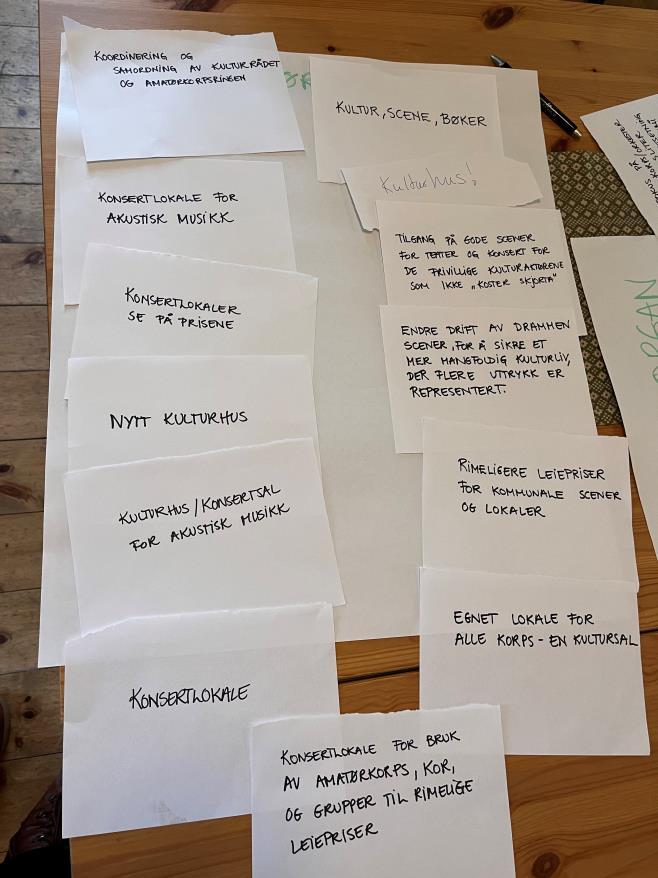 KOORDINERING OG
SAMORDNING AV KULTURRÅDET
OG AMATØRKORPSRINGEN
KONSERTLOKALE FOR
AKUSTISK MUSIKK
KONSERTLOKALER
SE PÅ PRISENE
NYTT KULTURHUS
KULTURHUS/KONSERTSAL
FOR AKUSTISK MUSIKK
KONSERTLOKALE
KONSERTLOKALE FOR BRUK
AV AMATØRKORPS, KOR,
OG GRUPPER TIL RIMELIGE
LEIEPRISER
KULTUR, SCENE, BØKER
Kulturhus!
TILGANG PÅ GODE SCENER
FOR TEATER OG KONSERT FOR
DE FRIVILLIGE KULTURAKTØRENE
SOM IKKE "KOSTER SKJORTA"
ENDRE DRIFT AV DRAMMEN
SCENER, FOR Å SIKRE ET
MER MANGFOLDIG KULTURLIV,
DER FLERE UTTRYKK ER
REPRESENTERT.
RIMELIGERE LEIEPRISER
FOR KOMMUNALE SCENER
OG LOKALER
EGNET LOKALE FOR
ALLE KORPS - EN KULTURSAL